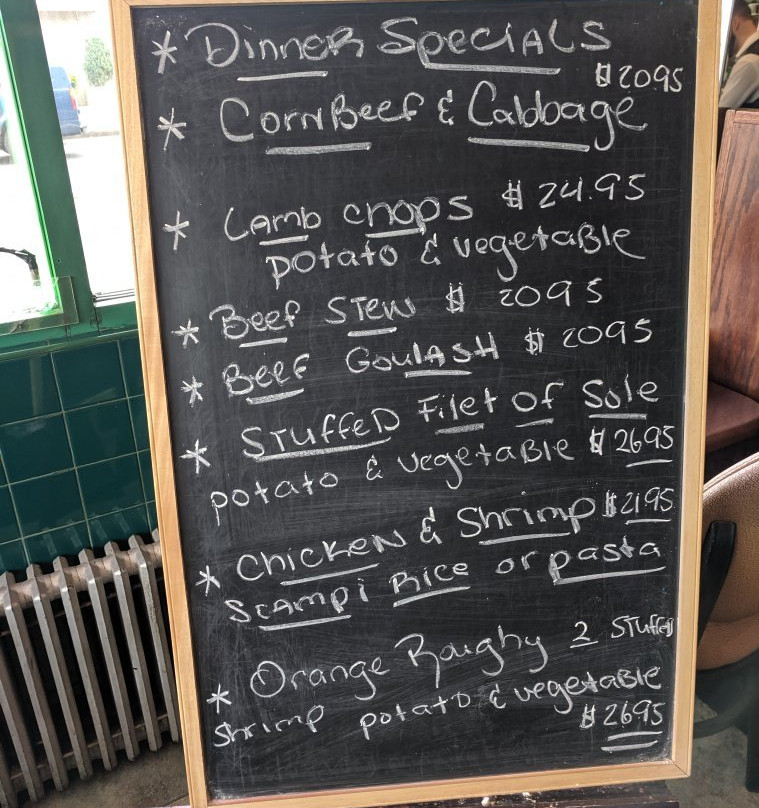 * Dinner Specials
$2095
* CornBeef & Cabbage
* Lamb chops $24.95
potato & vegetable
* Beef Stew $ 2095
* Beef Goulash $ 2095
* Stuffed Filet of Sole
potato & vegetable $2695
* Chicken & Shrimp $2195
Scampi Rice or pasta
* Orange Roughy 2 Stuffed
Shrimp potato & vegetable
$2695